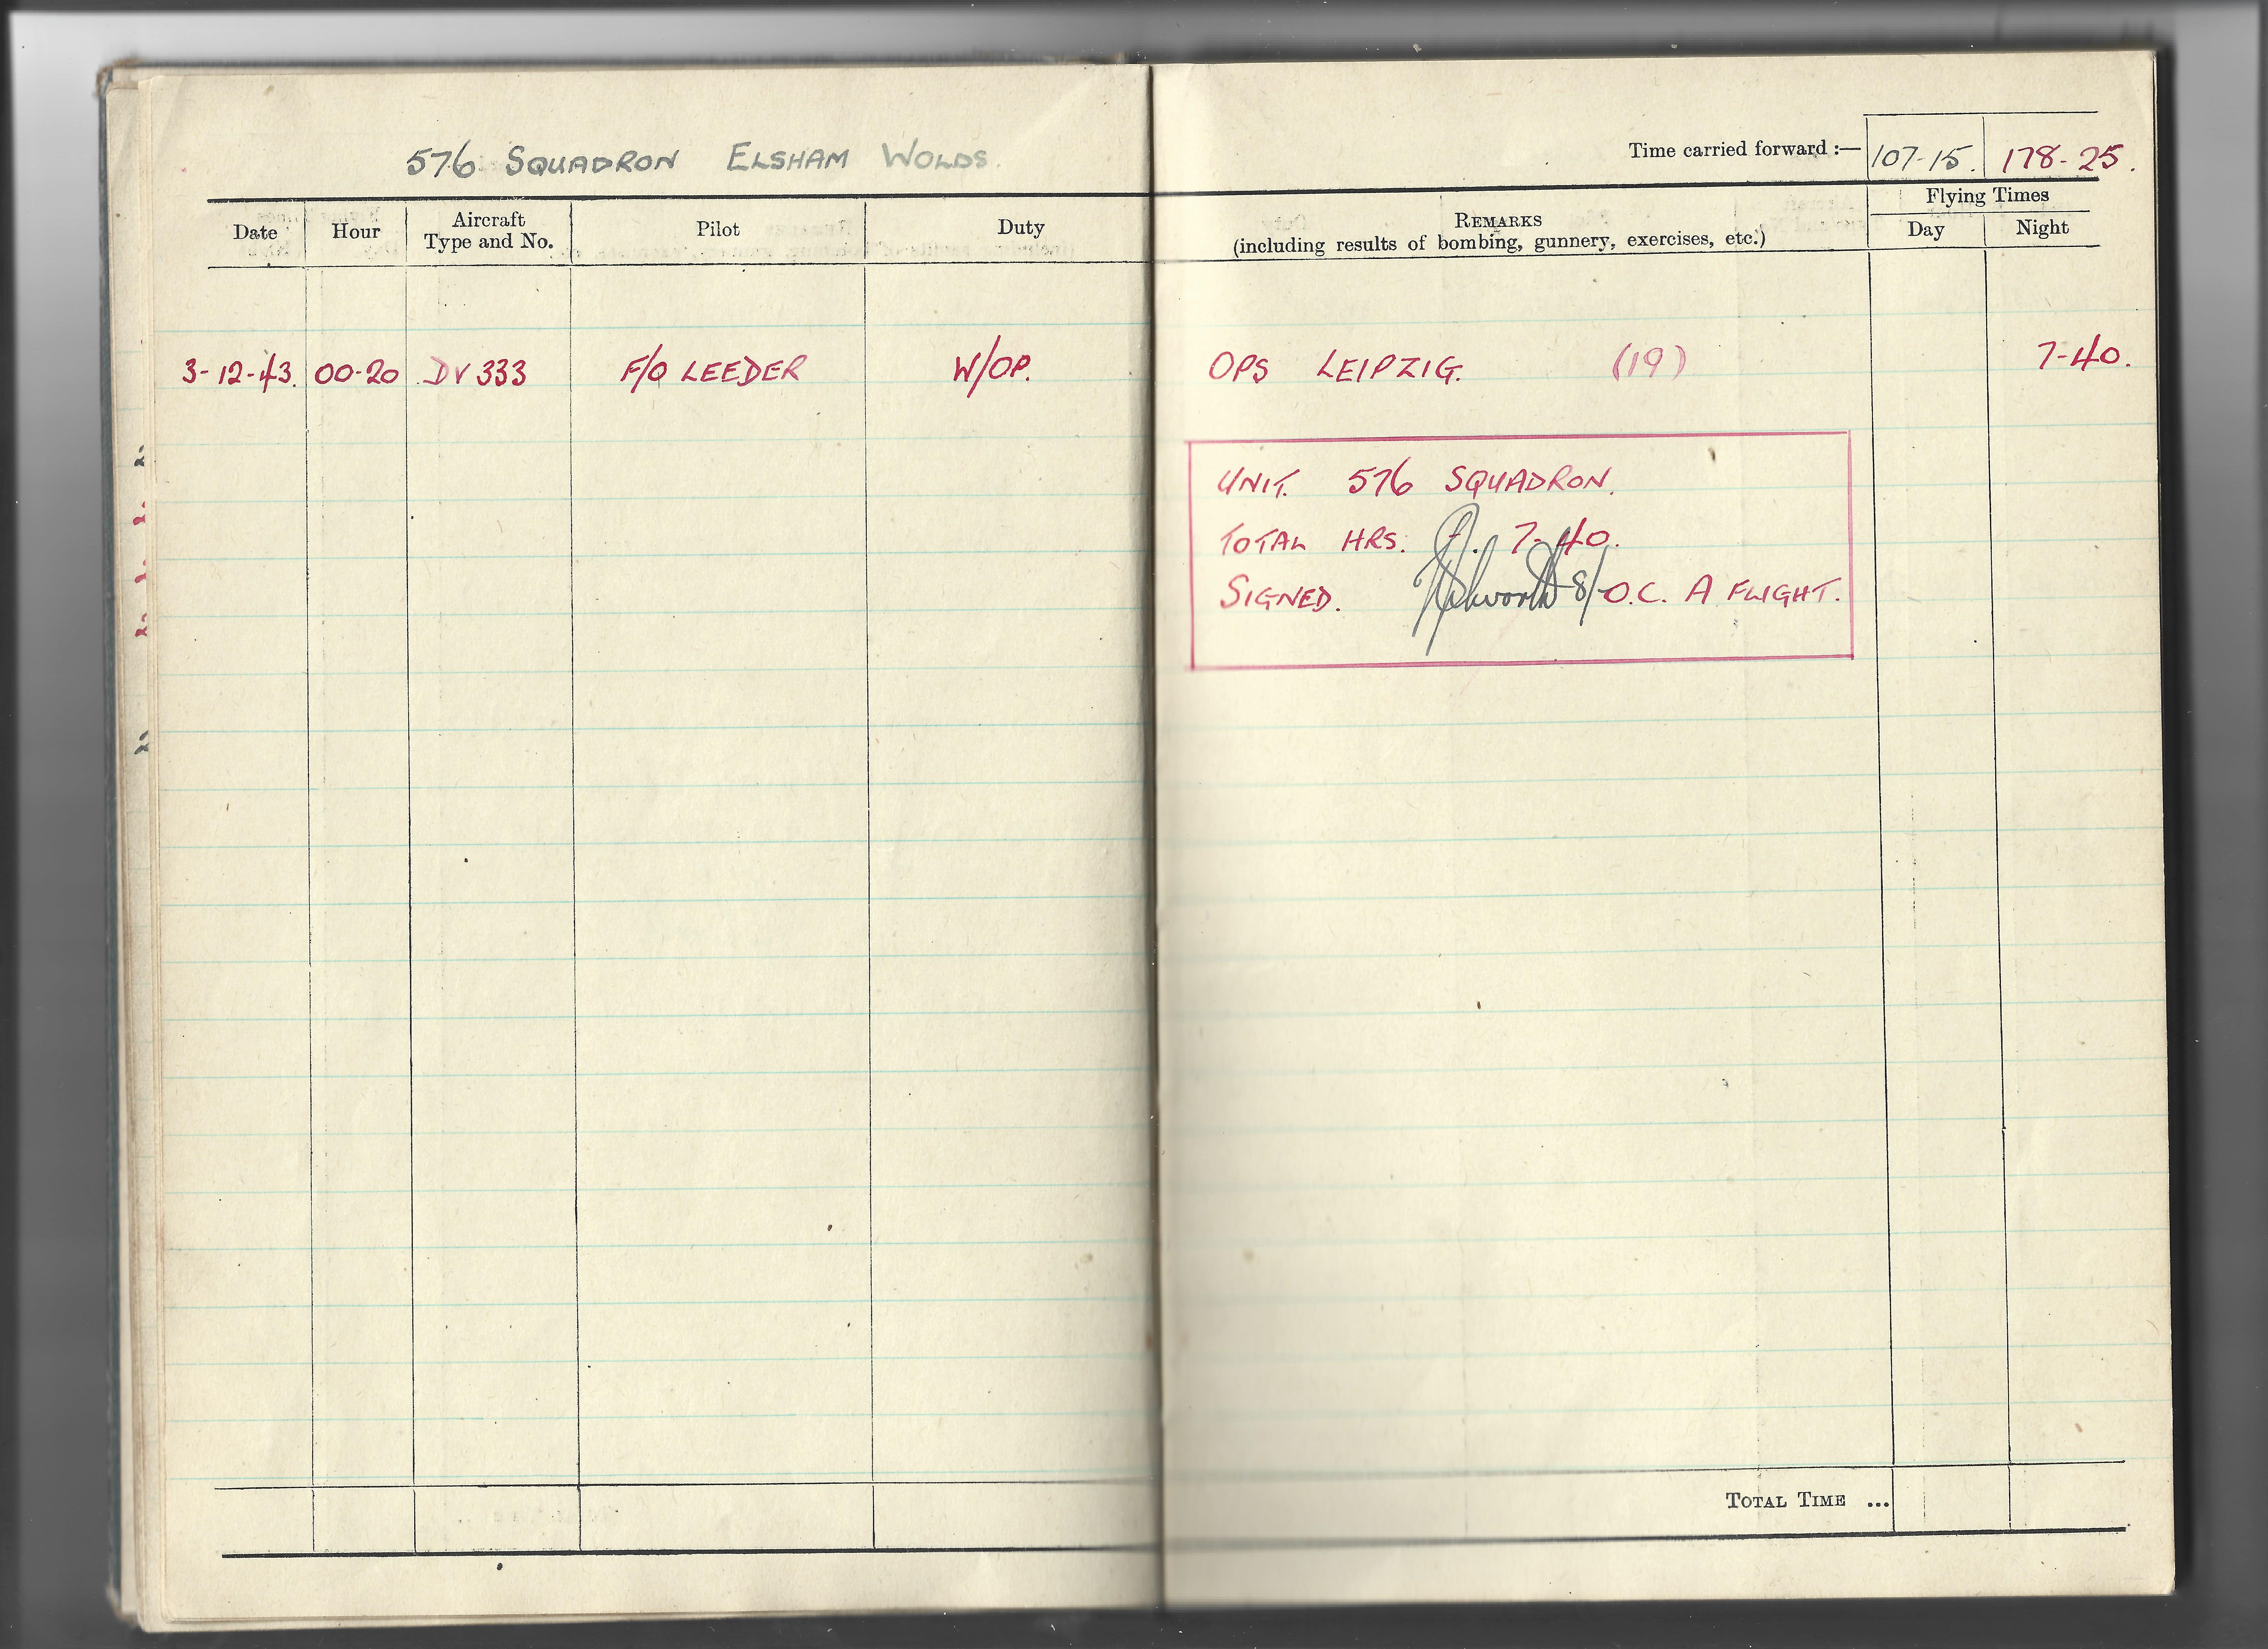 576 SQUADRON ELSHAM WOLDS.
Time carried forward :— 107-15. 178-25.
Date Hour Aircraft Type and No. Pilot Duty REMARKS (including results of bombing, gunnery, exercises, etc.) Flying Times Day Night
3-12-43. 00-20 DV 333 F/O LEEDER W/OP. OPS LEIPZIG. (19) 7-40.
UNIT. 576 SQUADRON.
TOTAL HRS. 7-40.
SIGNED. O.C. A FLIGHT.
TOTAL TIME ...